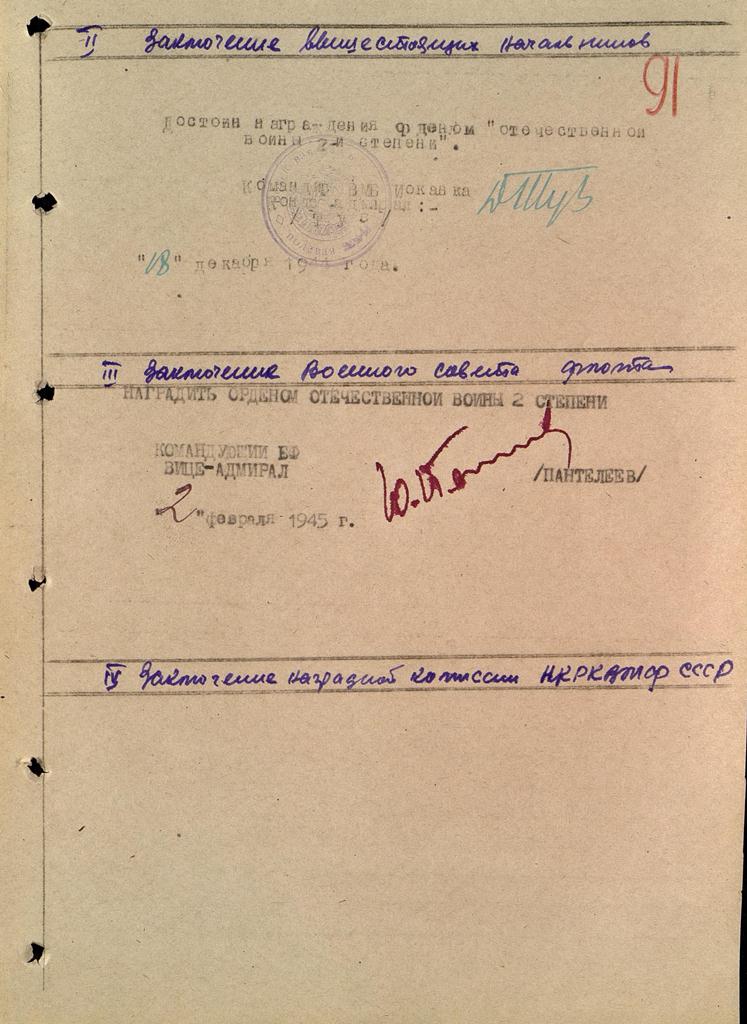 II Заключение вышестоящих начальников
91
Достоин награждения орденом "отечественной
войны 2й степени".
Командир ВМБ Иоканка
Контр адмирал :-
"18" декабря 1944 года.
III Заключение Военного совета флота
НАГРАДИТЬ ОРДЕНОМ ОТЕЧЕСТВЕННОЙ ВОЙНЫ 2 СТЕПЕНИ
КОМАНДУЮЩИЙ БФ
ВИЦЕ-АДМИРАЛ /ПАНТЕЛЕЕВ/
"2" февраля 1945 г.
IV Заключение наградной комиссии НКРКВМФ СССР